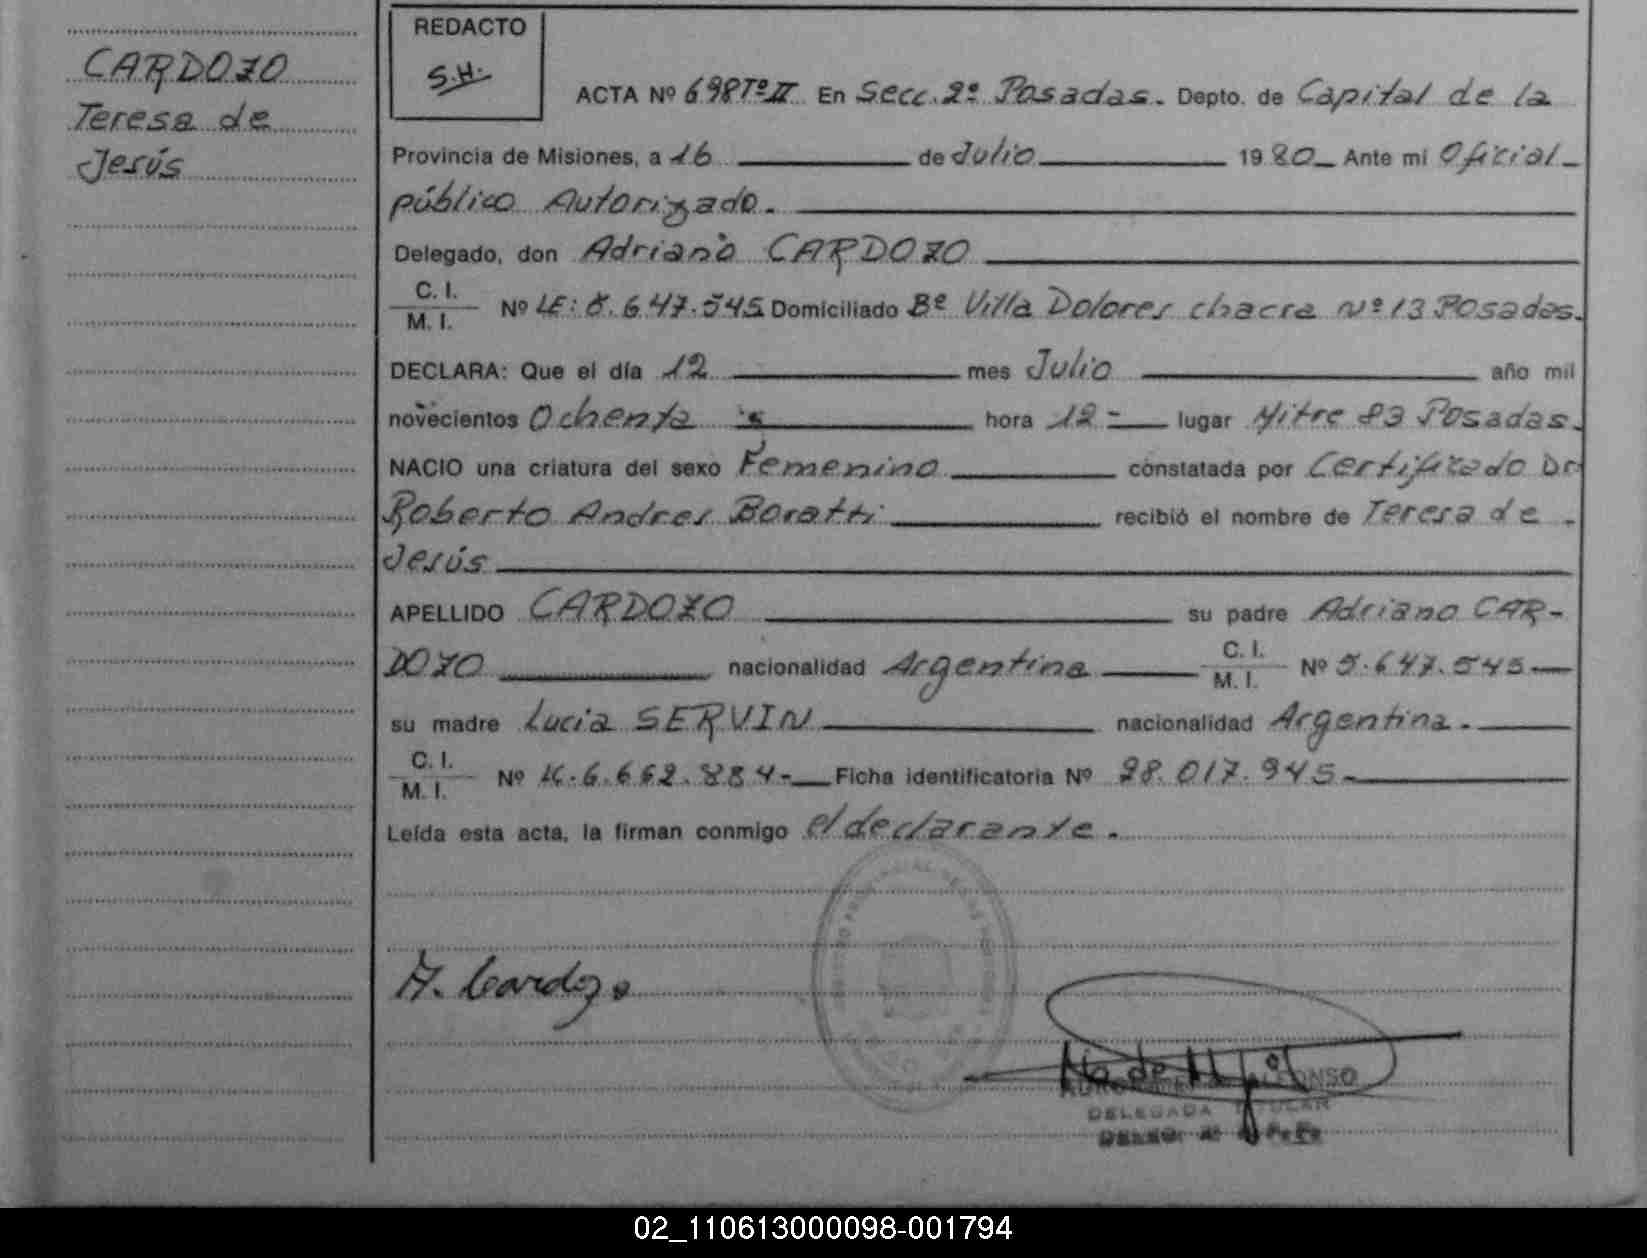 CARDOZO
Teresa de
Jesús
REDACTO
S.H.
ACTA Nº 698Tº II En Secc. 2º Posadas. Depto. de Capital de la
Provincia de Misiones, a 16 de Julio 1980 Ante mi Oficial
público Autorizado.
Delegado, don Adriano CARDOZO
C. I.
M. I. Nº LE: 5.647.545 Domiciliado Bº Villa Dolores chacra nº 13 Posadas.
DECLARA: Que el día 12 mes Julio año mil
novecientos Ochenta hora 12 - lugar Mitre 83 Posadas.
NACIO una criatura del sexo Femenino constatada por Certificado Dr
Roberto Andres Boratti recibió el nombre de Teresa de
Jesús
APELLIDO CARDOZO su padre Adriano CAR-
DOZO nacionalidad Argentina C. I.
M. I. Nº 5.647.545
su madre Lucia SERVIN nacionalidad Argentina.
C. I.
M. I. Nº 6.662.884- Ficha identificatoria Nº 28.017.945-
Leída esta acta, la firman conmigo el declarante.
A. Cardozo
DELEGADA TITULAR
02_110613000098-001794